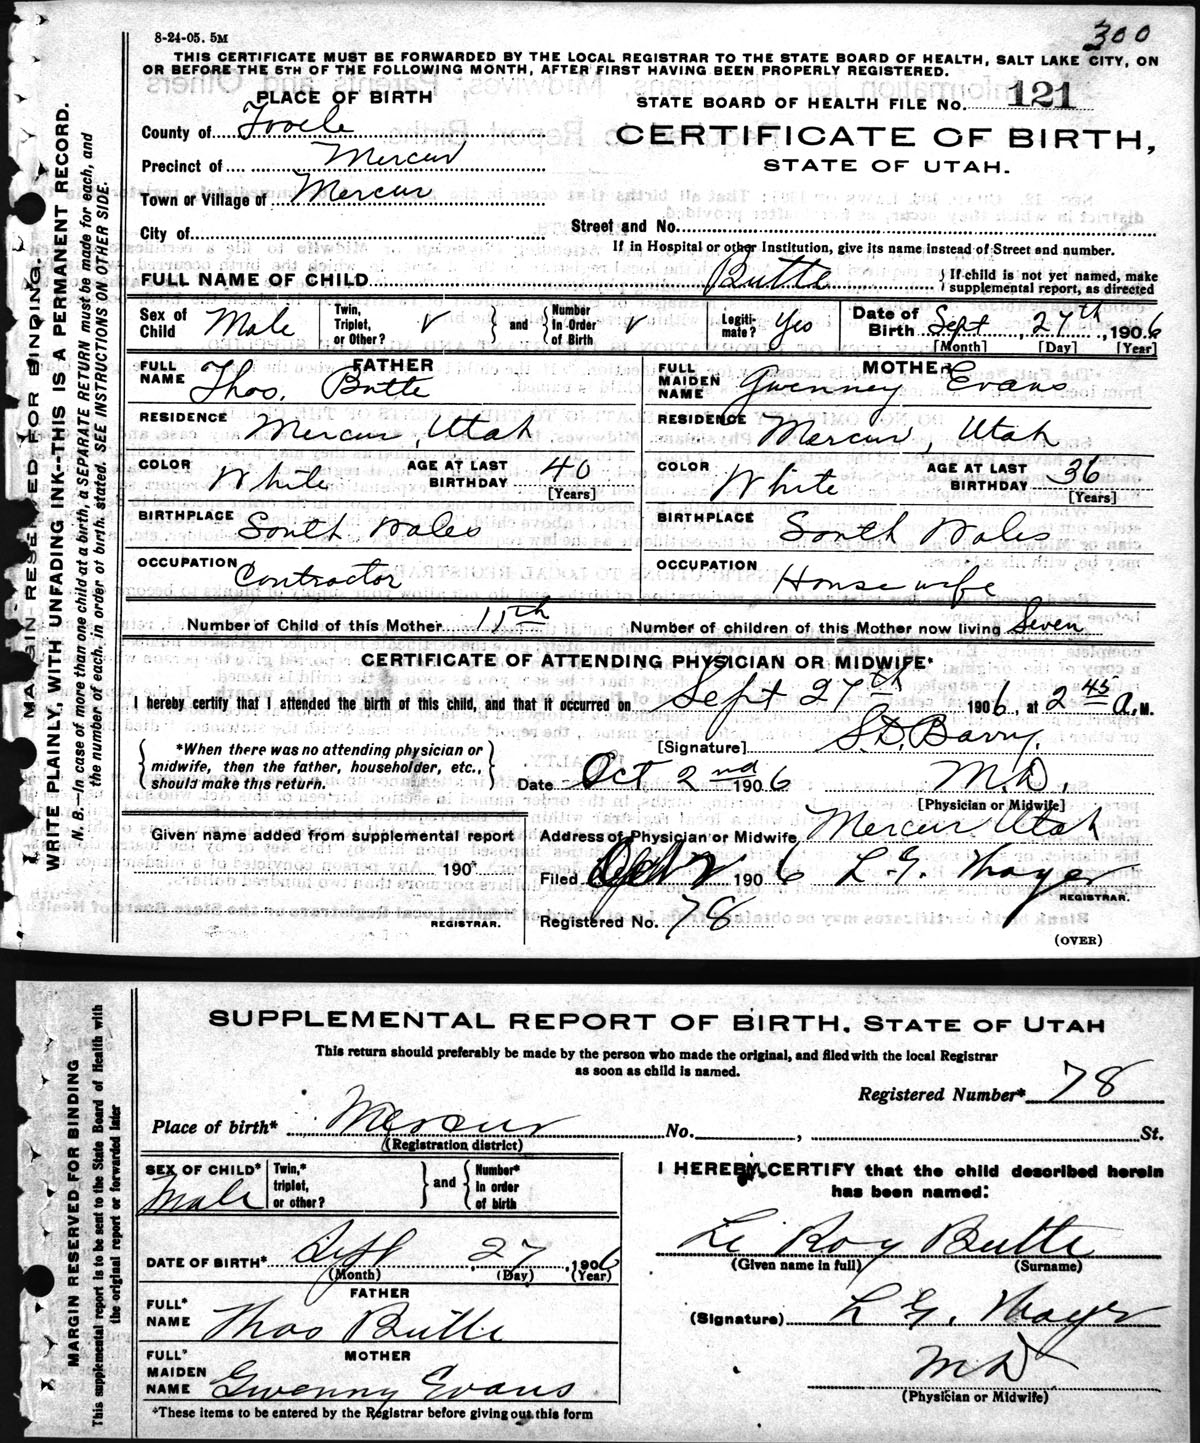 300
8-24-05. 5M
THIS CERTIFICATE MUST BE FORWARDED BY THE LOCAL REGISTRAR TO THE STATE BOARD OF HEALTH, SALT LAKE CITY, ON
OR BEFORE THE 5TH OF THE FOLLOWING MONTH, AFTER FIRST HAVING BEEN PROPERLY REGISTERED.
PLACE OF BIRTH
STATE BOARD OF HEALTH FILE No. 121
County of Tooele
CERTIFICATE OF BIRTH,
Precinct of Mercur
STATE OF UTAH.
Town or Village of Mercur
City of
Street and No.
If in Hospital or other Institution, give its name instead of Street and number.
FULL NAME OF CHILD Butte } If child is not yet named, make
supplemental report, as directed
Sex of Child Male Twin, Triplet, or Other? √ } and { Number In Order of Birth √ Legiti-mate? Yes Date of Birth Sept 27th, 1906
[Month] [Day] [Year]
FATHER
FULL NAME Thos. Butte
MOTHER
FULL MAIDEN NAME Gwenney Evans
RESIDENCE Mercur, Utah
RESIDENCE Mercur, Utah
COLOR White AGE AT LAST BIRTHDAY 40 [Years]
COLOR White AGE AT LAST BIRTHDAY 36 [Years]
BIRTHPLACE South Wales
BIRTHPLACE South Wales
OCCUPATION Contractor
OCCUPATION Housewife
Number of Child of this Mother 11th Number of children of this Mother now living Seven
CERTIFICATE OF ATTENDING PHYSICIAN OR MIDWIFE*
I hereby certify that I attended the birth of this child, and that it occurred on Sept 27th 1906, at 2 45 A.M.
{ *When there was no attending physician or
midwife, then the father, householder, etc.,
should make this return. }
[Signature] S.D. Barry.
Date Oct 2nd 1906 M.D.
[Physician or Midwife]
Given name added from supplemental report
190
REGISTRAR.
Address of Physician or Midwife Mercur Utah
Filed 2 1906 L. G. Thayer
REGISTRAR.
Registered No. 78
(OVER)
MARGIN RESERVED FOR BINDING.
WRITE PLAINLY, WITH UNFADING INK--THIS IS A PERMANENT RECORD.
N. B.—In case of more than one child at a birth, a SEPARATE RETURN must be made for each, and
the number of each, in order of birth, stated. SEE INSTRUCTIONS ON OTHER SIDE.
SUPPLEMENTAL REPORT OF BIRTH, STATE OF UTAH
This return should preferably be made by the person who made the original, and filed with the local Registrar
as soon as child is named.
Registered Number* 78
Place of birth* Mercur No. , St.
(Registration district)
SEX OF CHILD* Male Twin,* triplet, or other? } and { Number* In order of birth
I HEREBY CERTIFY that the child described herein
has been named:
DATE OF BIRTH* Sept 27, 1906
(Month) (Day) (Year)
Le Roy Butte
(Given name in full) (Surname)
FATHER
FULL* NAME Thos Butte
(Signature) L G. Thayer
MOTHER
FULL* MAIDEN NAME Gwenny Evans
M D
(Physician or Midwife)
*These items to be entered by the Registrar before giving out this form
MARGIN RESERVED FOR BINDING
This supplemental report is to be sent to the State Board of Health with
the original report or forwarded later